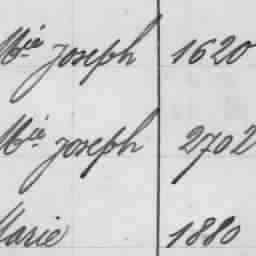 Mie Joseph 1620
Mie Joseph 2702
Marie 1880